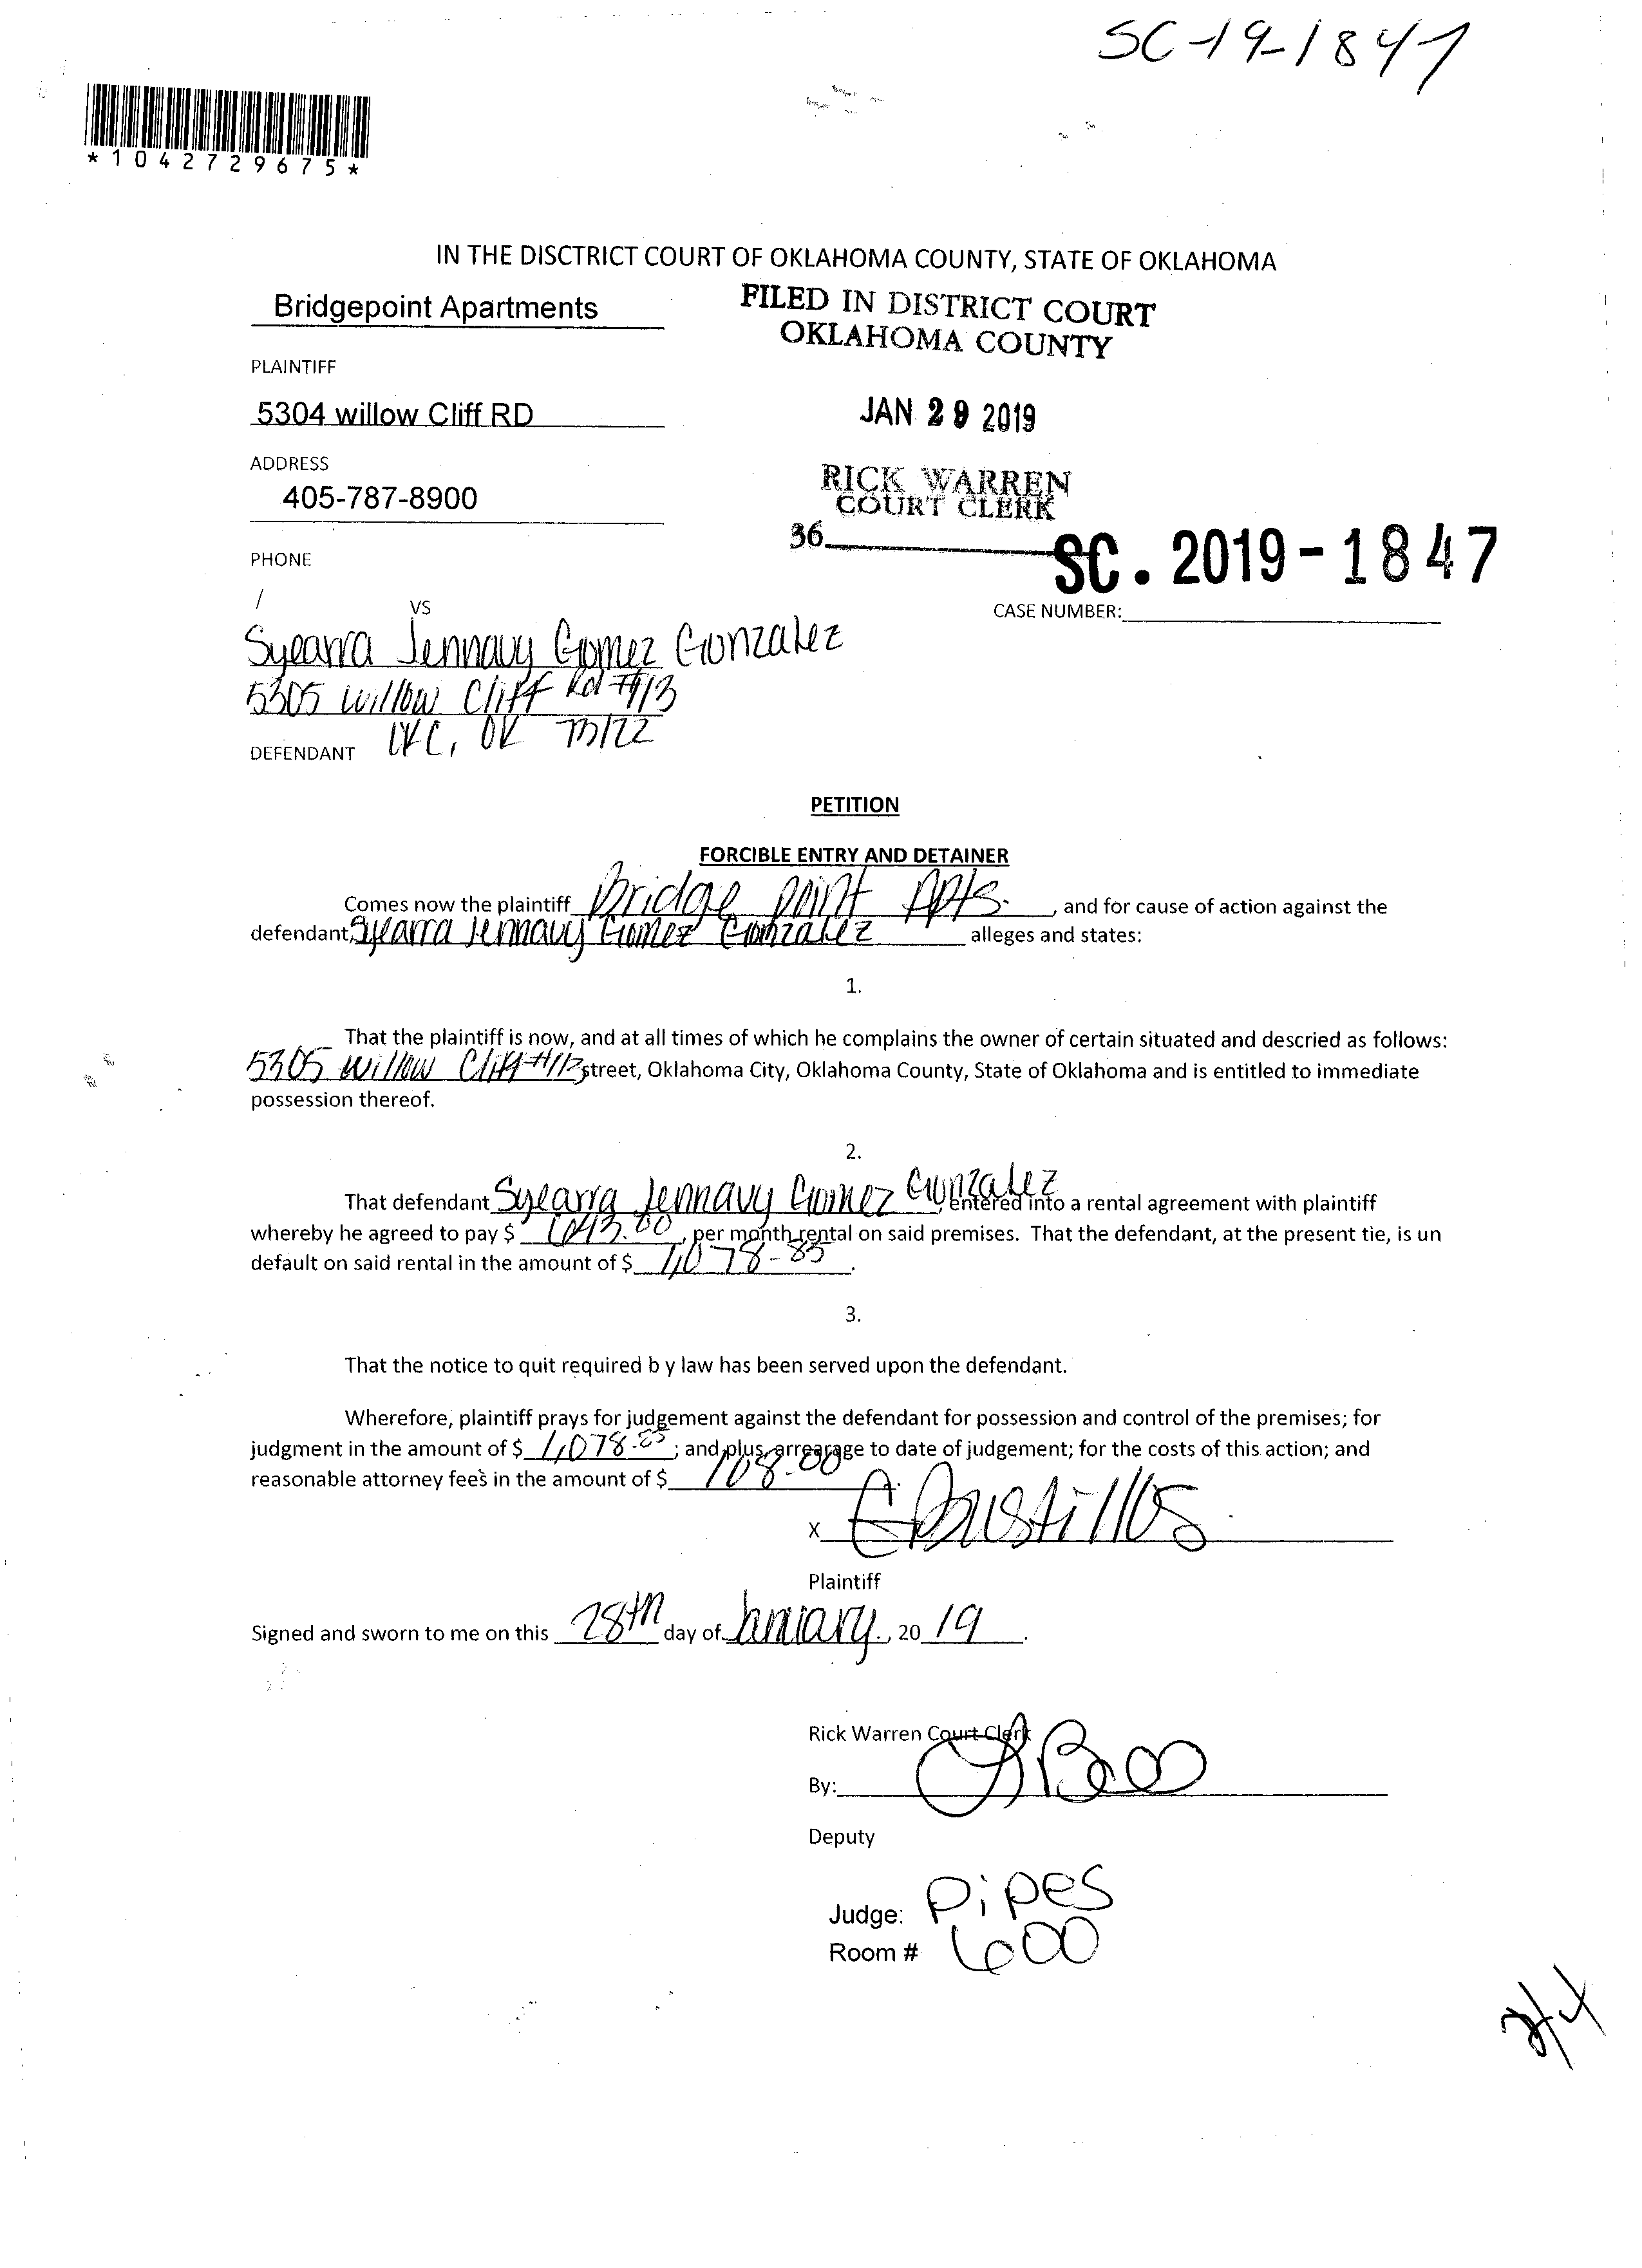 SC-19-1847
*1042729675*
IN THE DISCTRICT COURT OF OKLAHOMA COUNTY, STATE OF OKLAHOMA
Bridgepoint Apartments
FILED IN DISTRICT COURT
OKLAHOMA COUNTY
PLAINTIFF
5304 willow Cliff RD
JAN 29 2019
ADDRESS
RICK WARREN
COURT CLERK
405-787-8900
36
PHONE
SC. 2019-1847
/
VS
CASE NUMBER:
Syearra Jennavy Gomez Gonzalez
5305 Willow Cliff Rd #113
OKC, OK 73122
DEFENDANT
PETITION
FORCIBLE ENTRY AND DETAINER
Comes now the plaintiff Bridge point Apts. , and for cause of action against the
defendant, Syearra Jennavy Gomez Gonzalez alleges and states:
1.
That the plaintiff is now, and at all times of which he complains the owner of certain situated and descried as follows:
5305 Willow Cliff #113 street, Oklahoma City, Oklahoma County, State of Oklahoma and is entitled to immediate
possession thereof.
2.
That defendant Syearra Jennavy Gomez Gonzalez, entered into a rental agreement with plaintiff
whereby he agreed to pay $ 1043.00, per month rental on said premises. That the defendant, at the present tie, is un
default on said rental in the amount of $ 1,078-85.
3.
That the notice to quit required b y law has been served upon the defendant.
Wherefore, plaintiff prays for judgement against the defendant for possession and control of the premises; for
judgment in the amount of $ 1,078-85; and plus arrearage to date of judgement; for the costs of this action; and
reasonable attorney fees in the amount of $ 108-00.
X EBustillos
Plaintiff
Signed and sworn to me on this 28th day of January, 20 19.
Rick Warren Court Clerk
By:
Deputy
Judge: Pipes
Room # 600
2/4